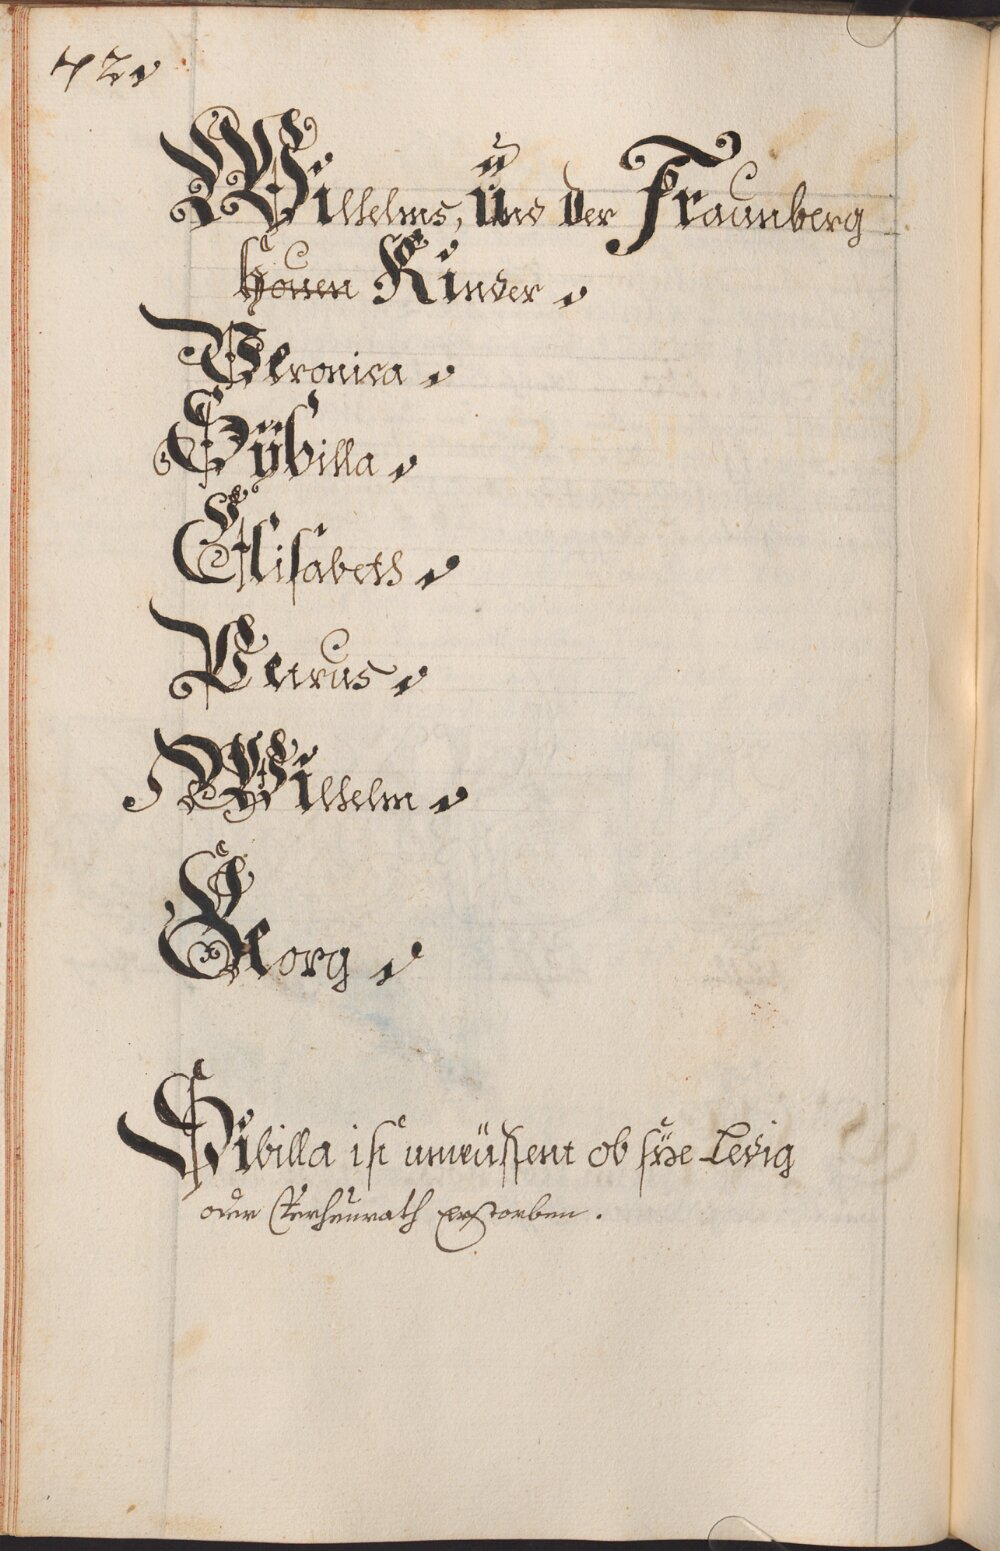 72
Wilhelms, und der Fraunberg
houen Kinder
Veronica
Sÿbilla
Elisabeth
Petrus
Wilhelm
Georg
Sibilla ist unwüssent ob sÿe Ledig
oder verheurath verstorben.